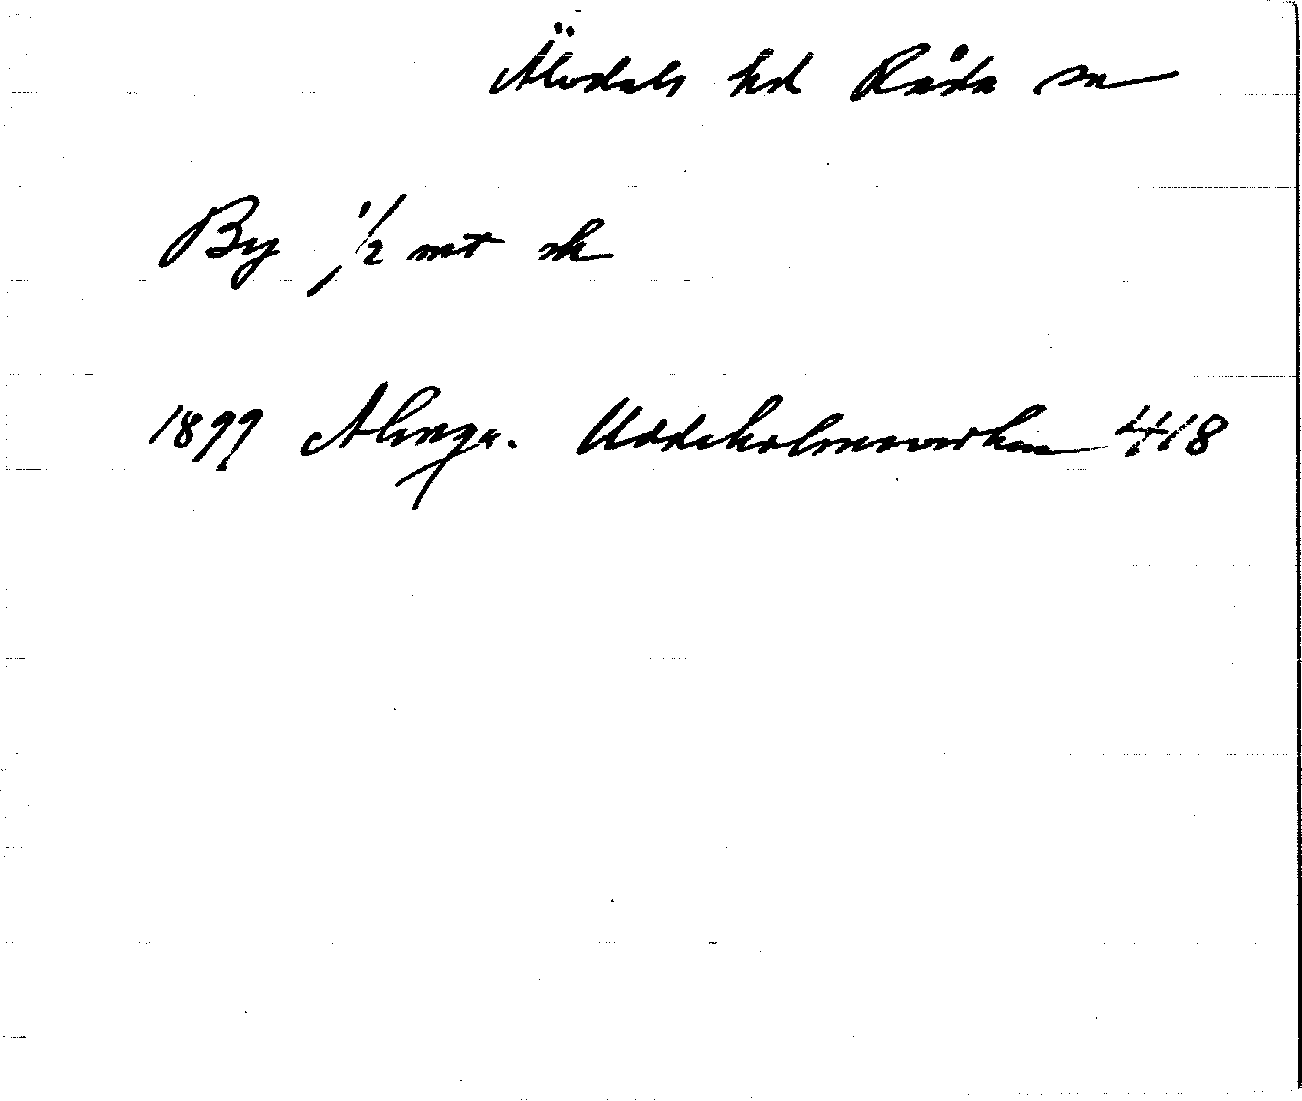 Älvdals hd Råda sn
By, 1/2 mt sk
1899 Almqu. Uddeholmsverken 418